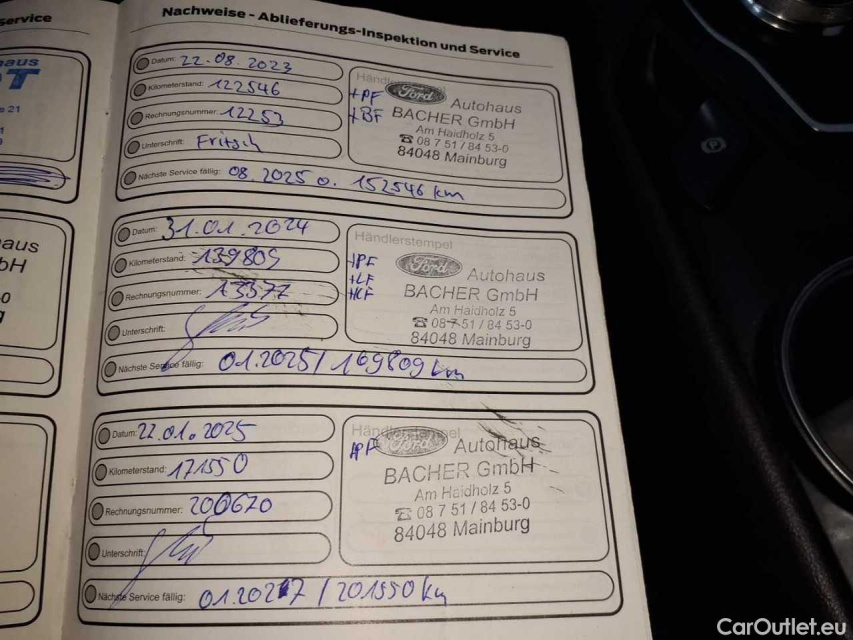 service
Nachweise - Ablieferungs-Inspektion und Service
haus
OT
21
Datum: 22.08.2023
Kilometerstand: 122546
Rechnungsnummer: 12253
Unterschrift: Fritsch
Nächste Service fällig: 08.2025 o. 152546 km
+PF
+BF
Ford Autohaus
BACHER GmbH
Am Haidholz 5
☎ 08 7 51 / 84 53-0
84048 Mainburg
aus
bH
-0
Datum: 31.01.2024
Kilometerstand: 139809
Rechnungsnummer: 13577
Unterschrift:
Nächste Service fällig: 01.2025 / 169809 km
Händlerstempel
+PF
+LF
+KF
Ford Autohaus
BACHER GmbH
Am Haidholz 5
☎ 08 7 51 / 84 53-0
84048 Mainburg
Datum: 22.01.2025
Kilometerstand: 171550
Rechnungsnummer: 200670
Unterschrift:
Nächste Service fällig: 01.2027 / 201550 km
Händlerstempel
+PF
Ford Autohaus
BACHER GmbH
Am Haidholz 5
☎ 08 7 51 / 84 53-0
84048 Mainburg
P
CarOutlet.eu